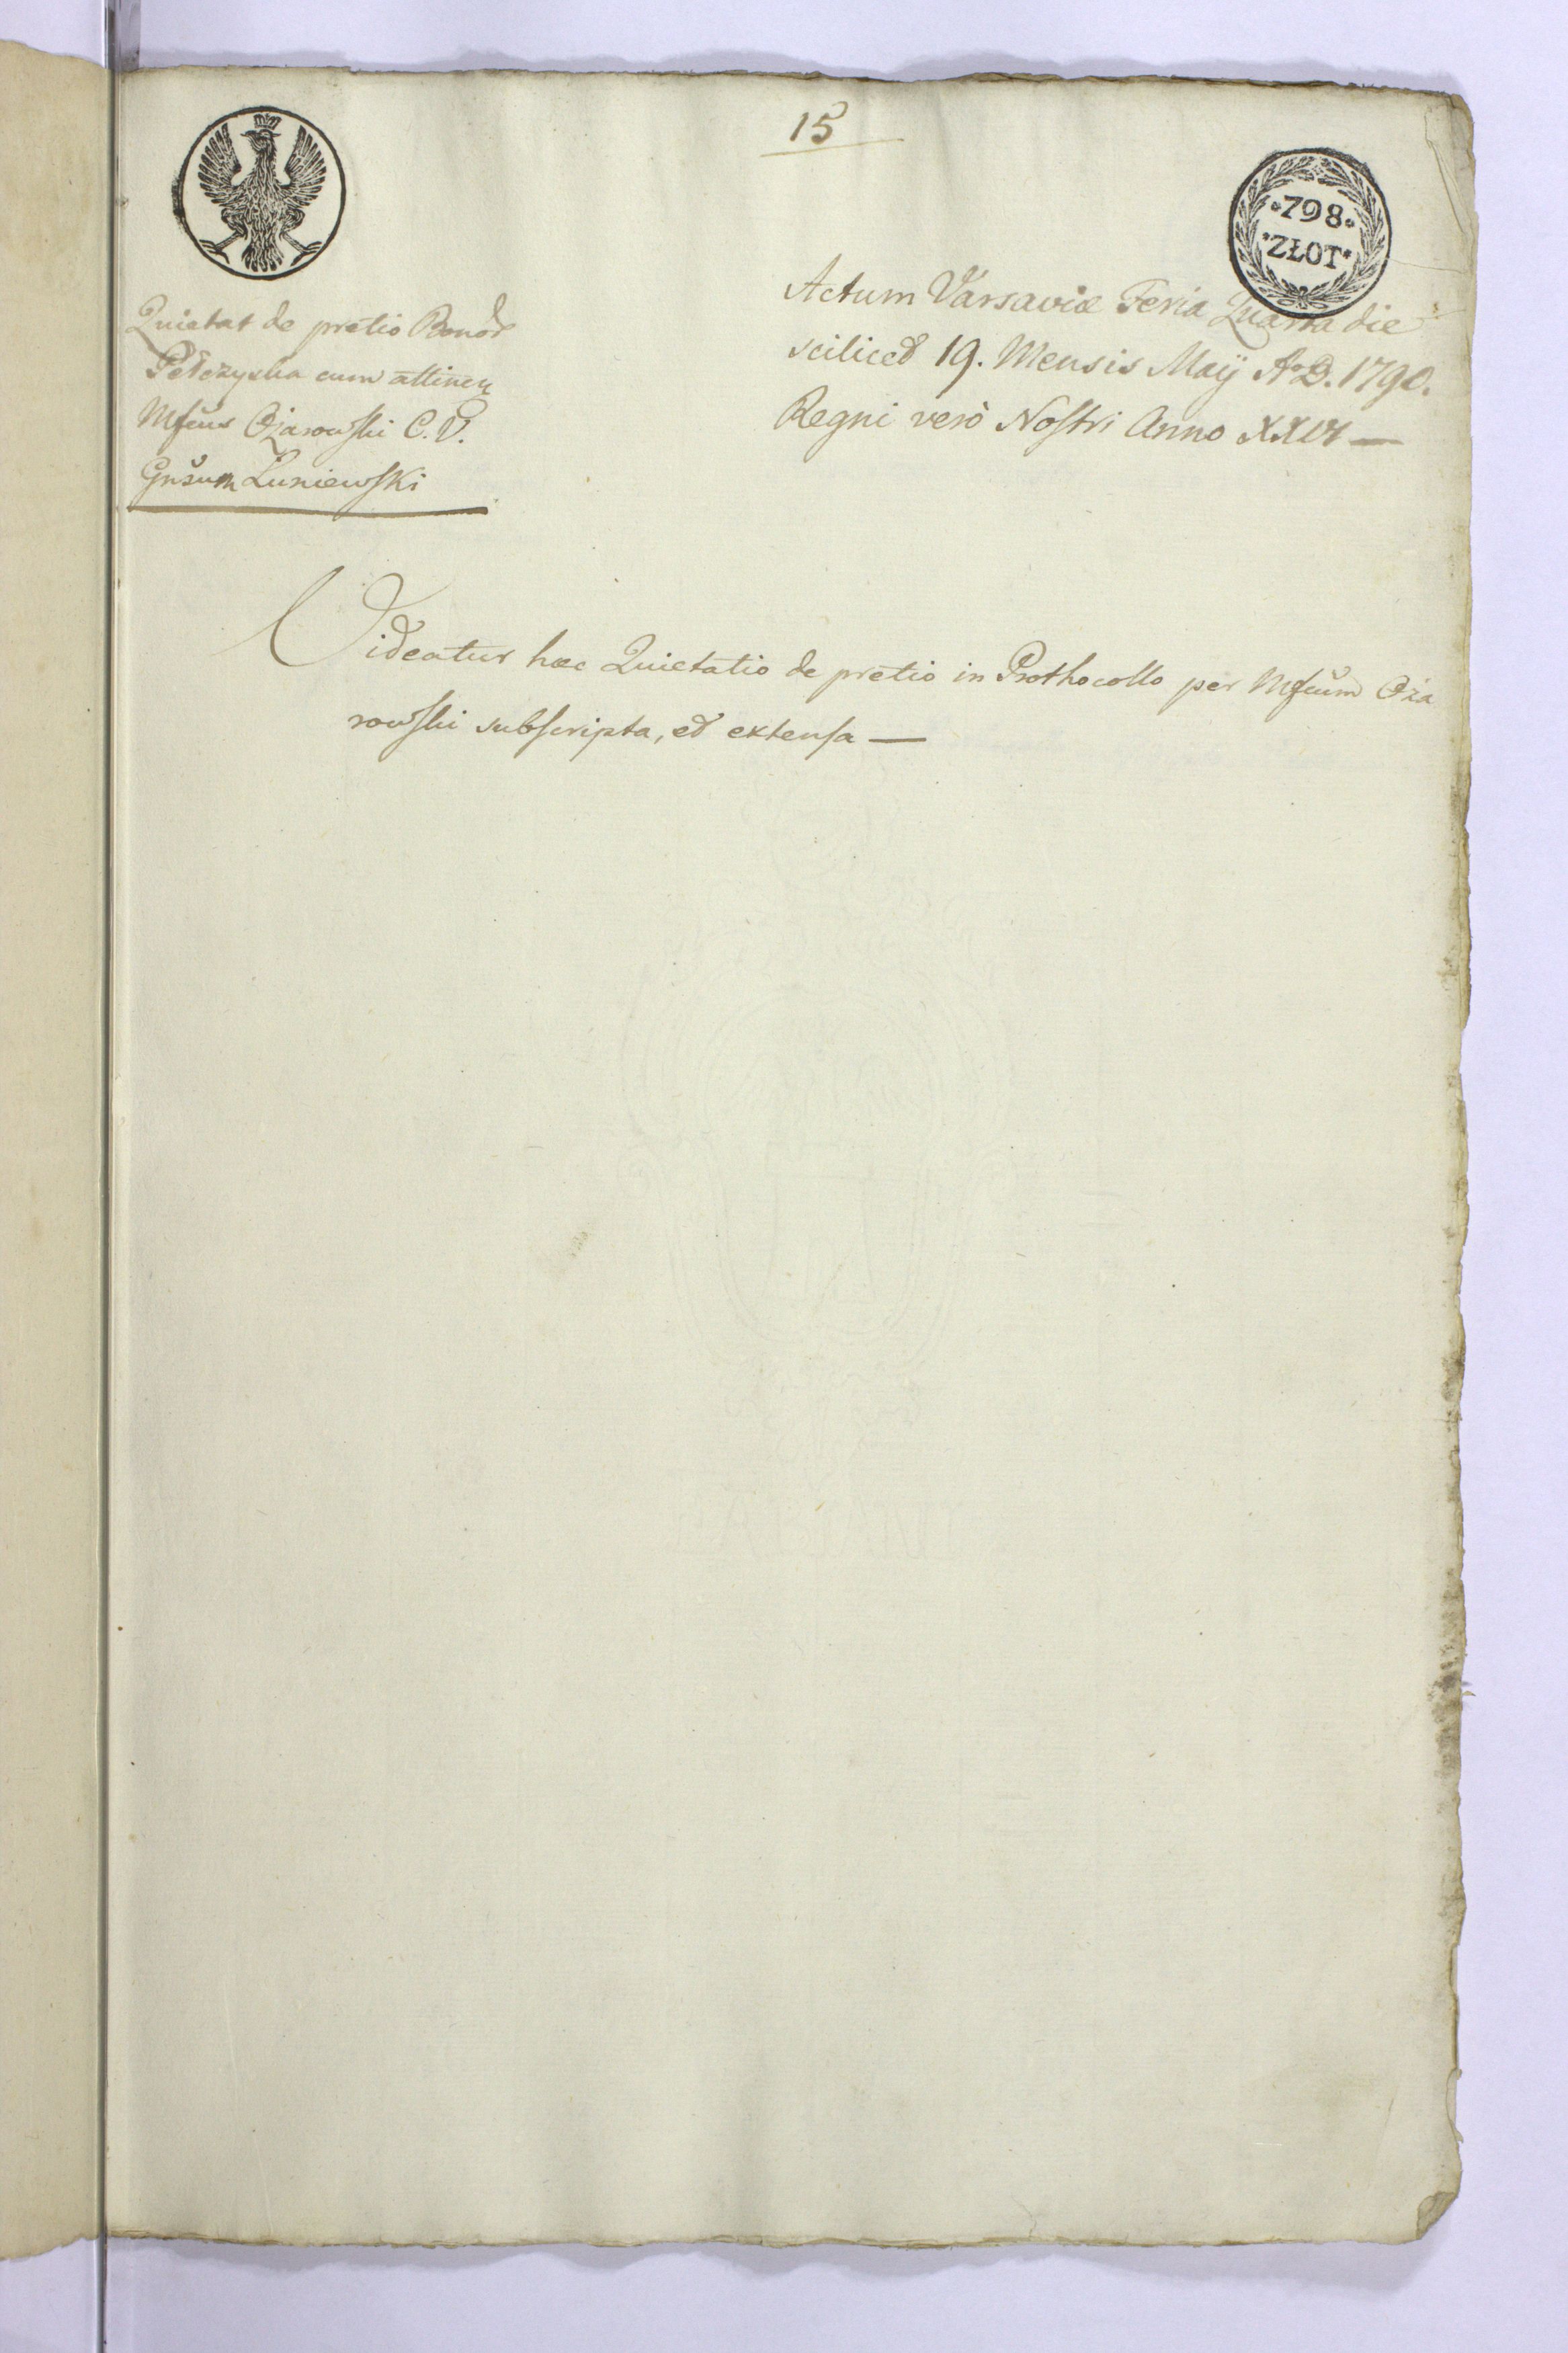 15
*798*
*ZŁOT*
Quietat de pretio Bonor
Pełczyska cum attinen
Mfcus Ożarowski C. V.
Gnsum Łuniewski
Actum Varsaviæ Feria Quarta die
scilicet 19. Mensis Maÿ A<sup>o</sup>D. 1790.
Regni verò Nostri Anno XXVI —
Videatur hæc Quietatio de pretio in Prothocollo per Mfcum Oża
rowski subscripta, et extensa —